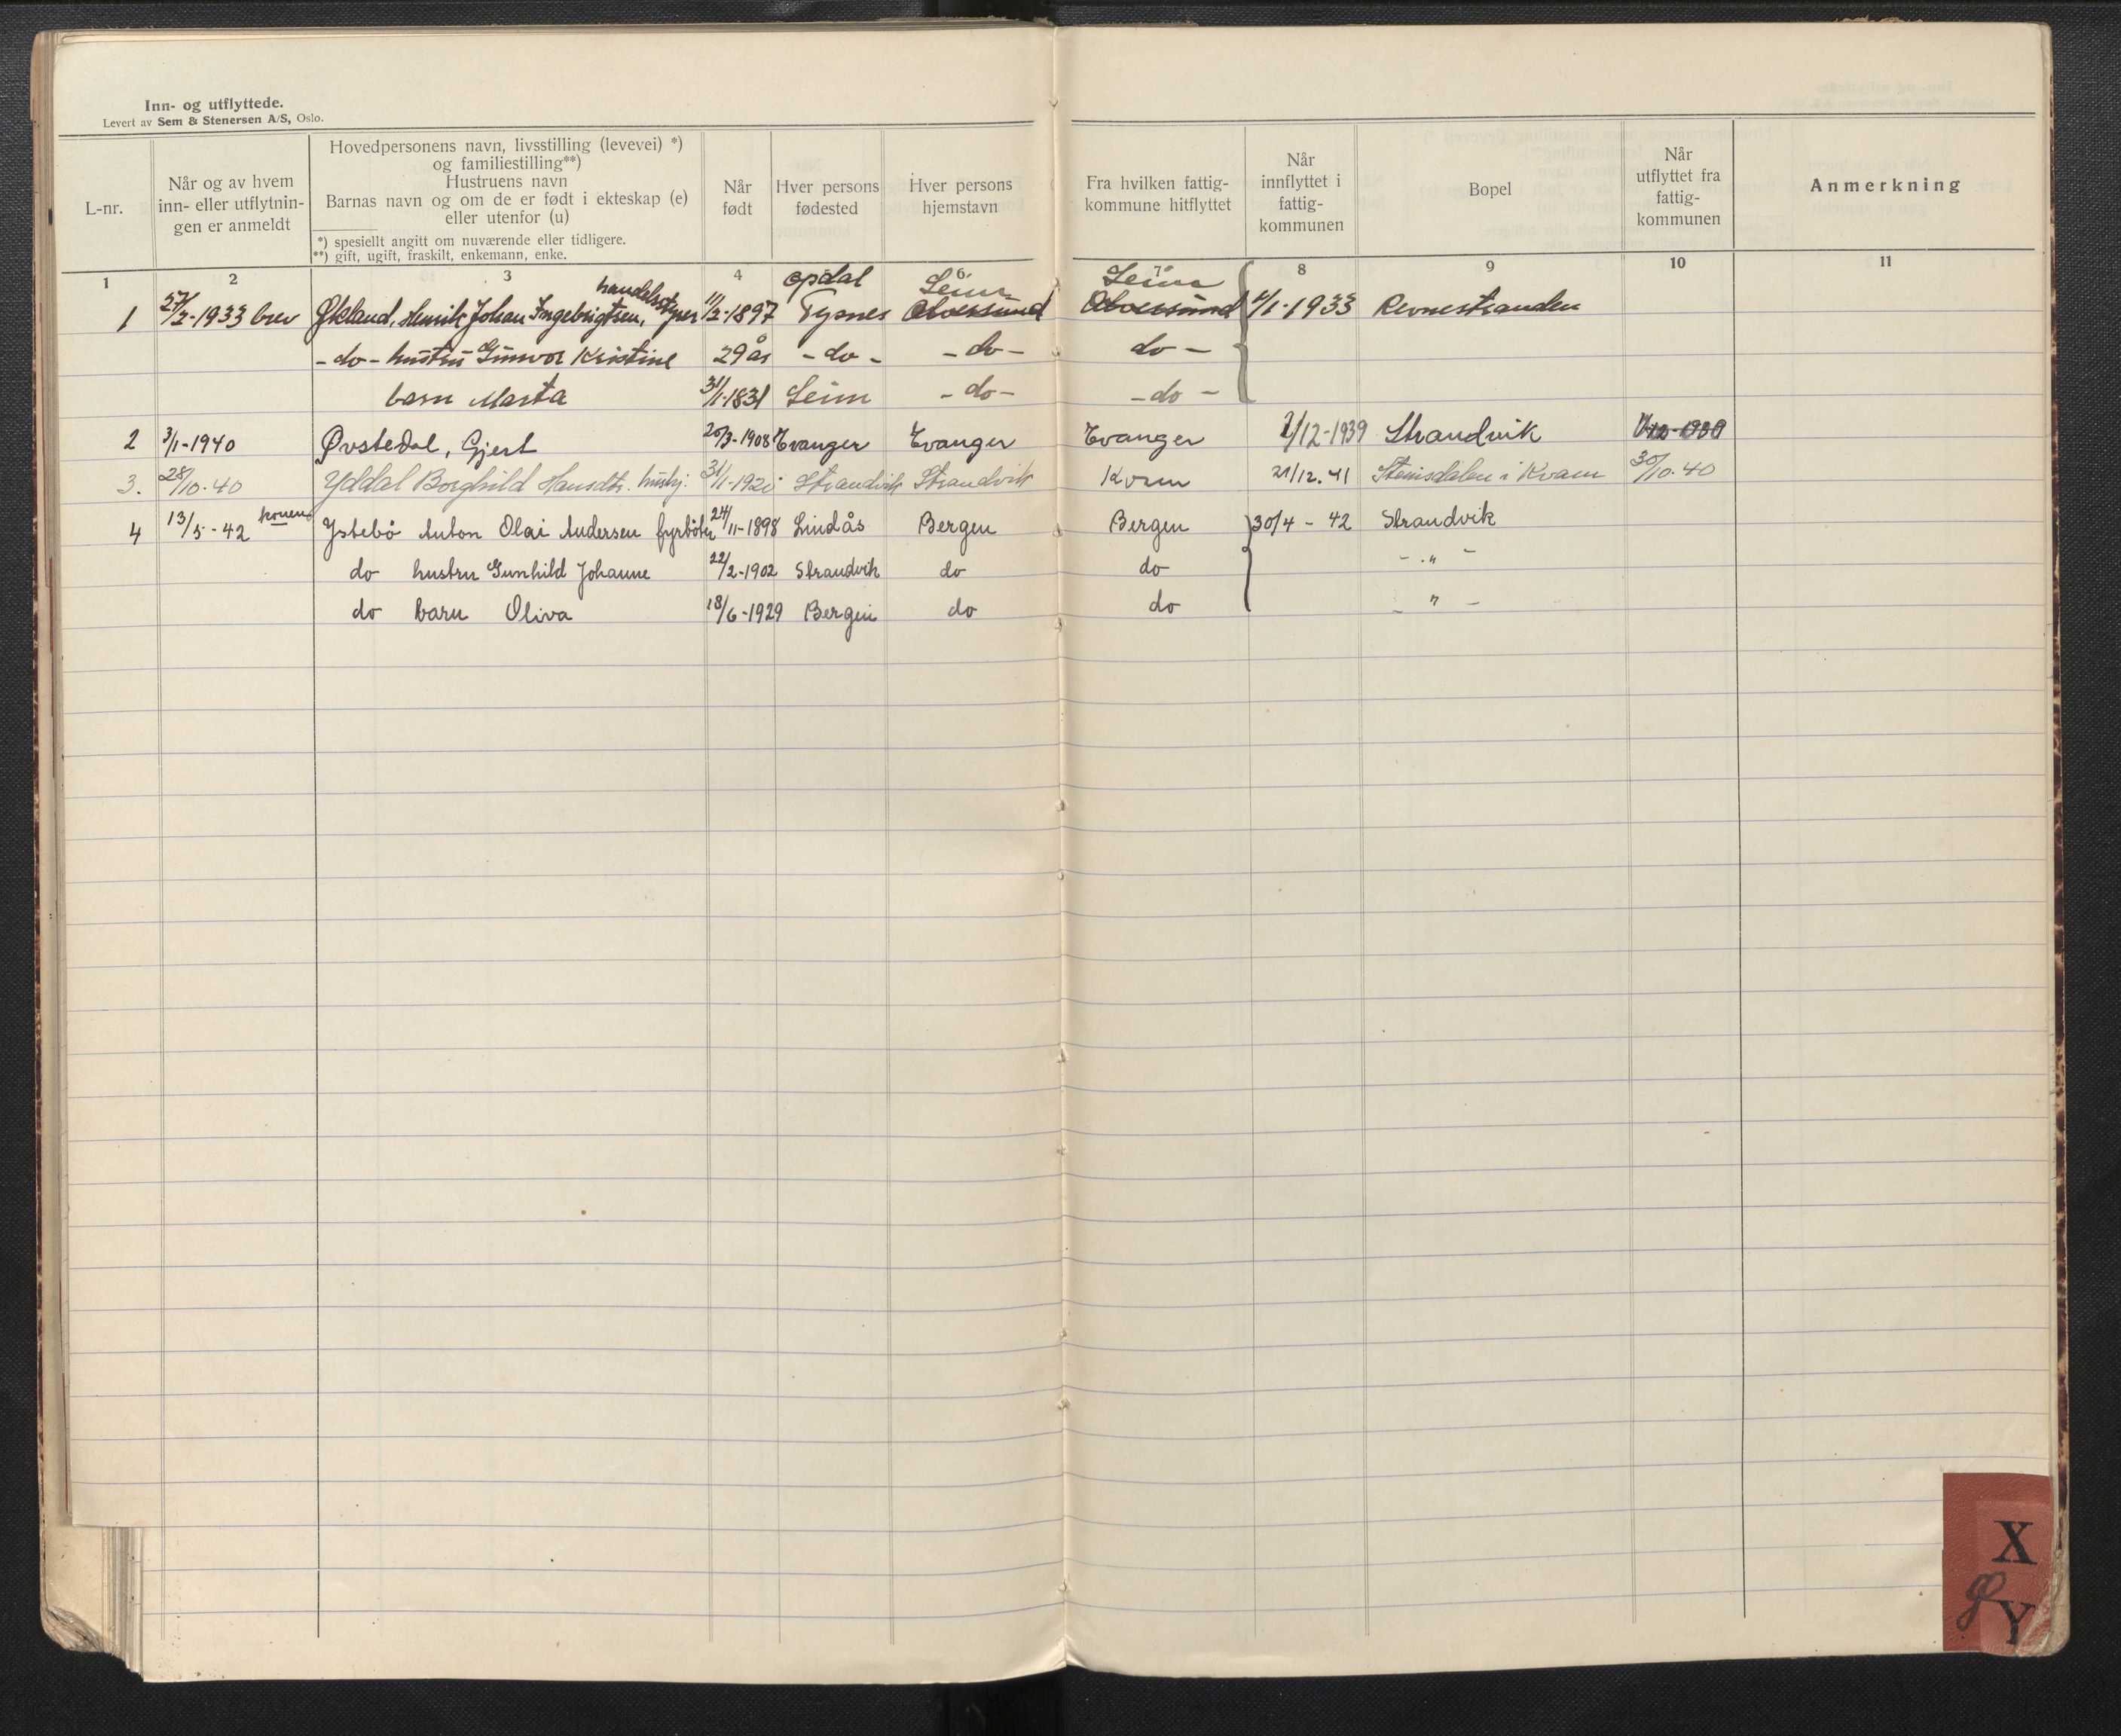 Inn- og utflyttede.
Levert av Sem & Stenersen A/S, Oslo.
L-nr.
Når og av hvem
inn- eller utflytnin-
gen er anmeldt
Hovedpersonens navn, livsstilling (levevei) *)
og familiestilling**)
Hustruens navn
Barnas navn og om de er født i ekteskap (e)
eller utenfor (u)
*) spesiellt angitt om nuværende eller tidligere.
**) gift, ugift, fraskilt, enkemann, enke.
Når
født
Hver persons
fødested
Hver persons
hjemstavn
Fra hvilken fattig-
kommune hitflyttet
Når
innflyttet i
fattig-
kommunen
Bopel
Når
utflyttet fra
fattig-
kommunen
Anmerkning
1 2 3 4 6 7 8 9 10 11
handelsstyrer opdal Seim Seim
1 27/2-1933 brev Økland, Henrik Johan Ingebrigtsen, 11/2-1897 Tysnes Alversund Alversund 1/1-1933 Revnestranden
-do- hustru Gunvor Kristine 29 år -do- -do- do-
barn Marta 31/1-1831 Seim -do- -do-
2 3/1-1940 Øvstedal, Gjert 20/3-1908 Evanger Evanger Evanger 1/12-1939 Strandvik
3. 28/10-40 Yddal Borghild Hansdtr. hushj. 31/1-192 Strandvik Strandvik Kvam 21/12.41 Steinsdalen i Kvam 30/10.40
4 13/5-42 konen Ystebø Anton Olai Andersen fyrbøter 24/11-1898 Lindås Bergen Bergen 30/4-42 Strandvik
do hustru Gunhild Johanne 22/2-1902 Strandvik do do -"-
do barn Oliva 18/6-1929 Bergen do do -"-
X
Ø
Y